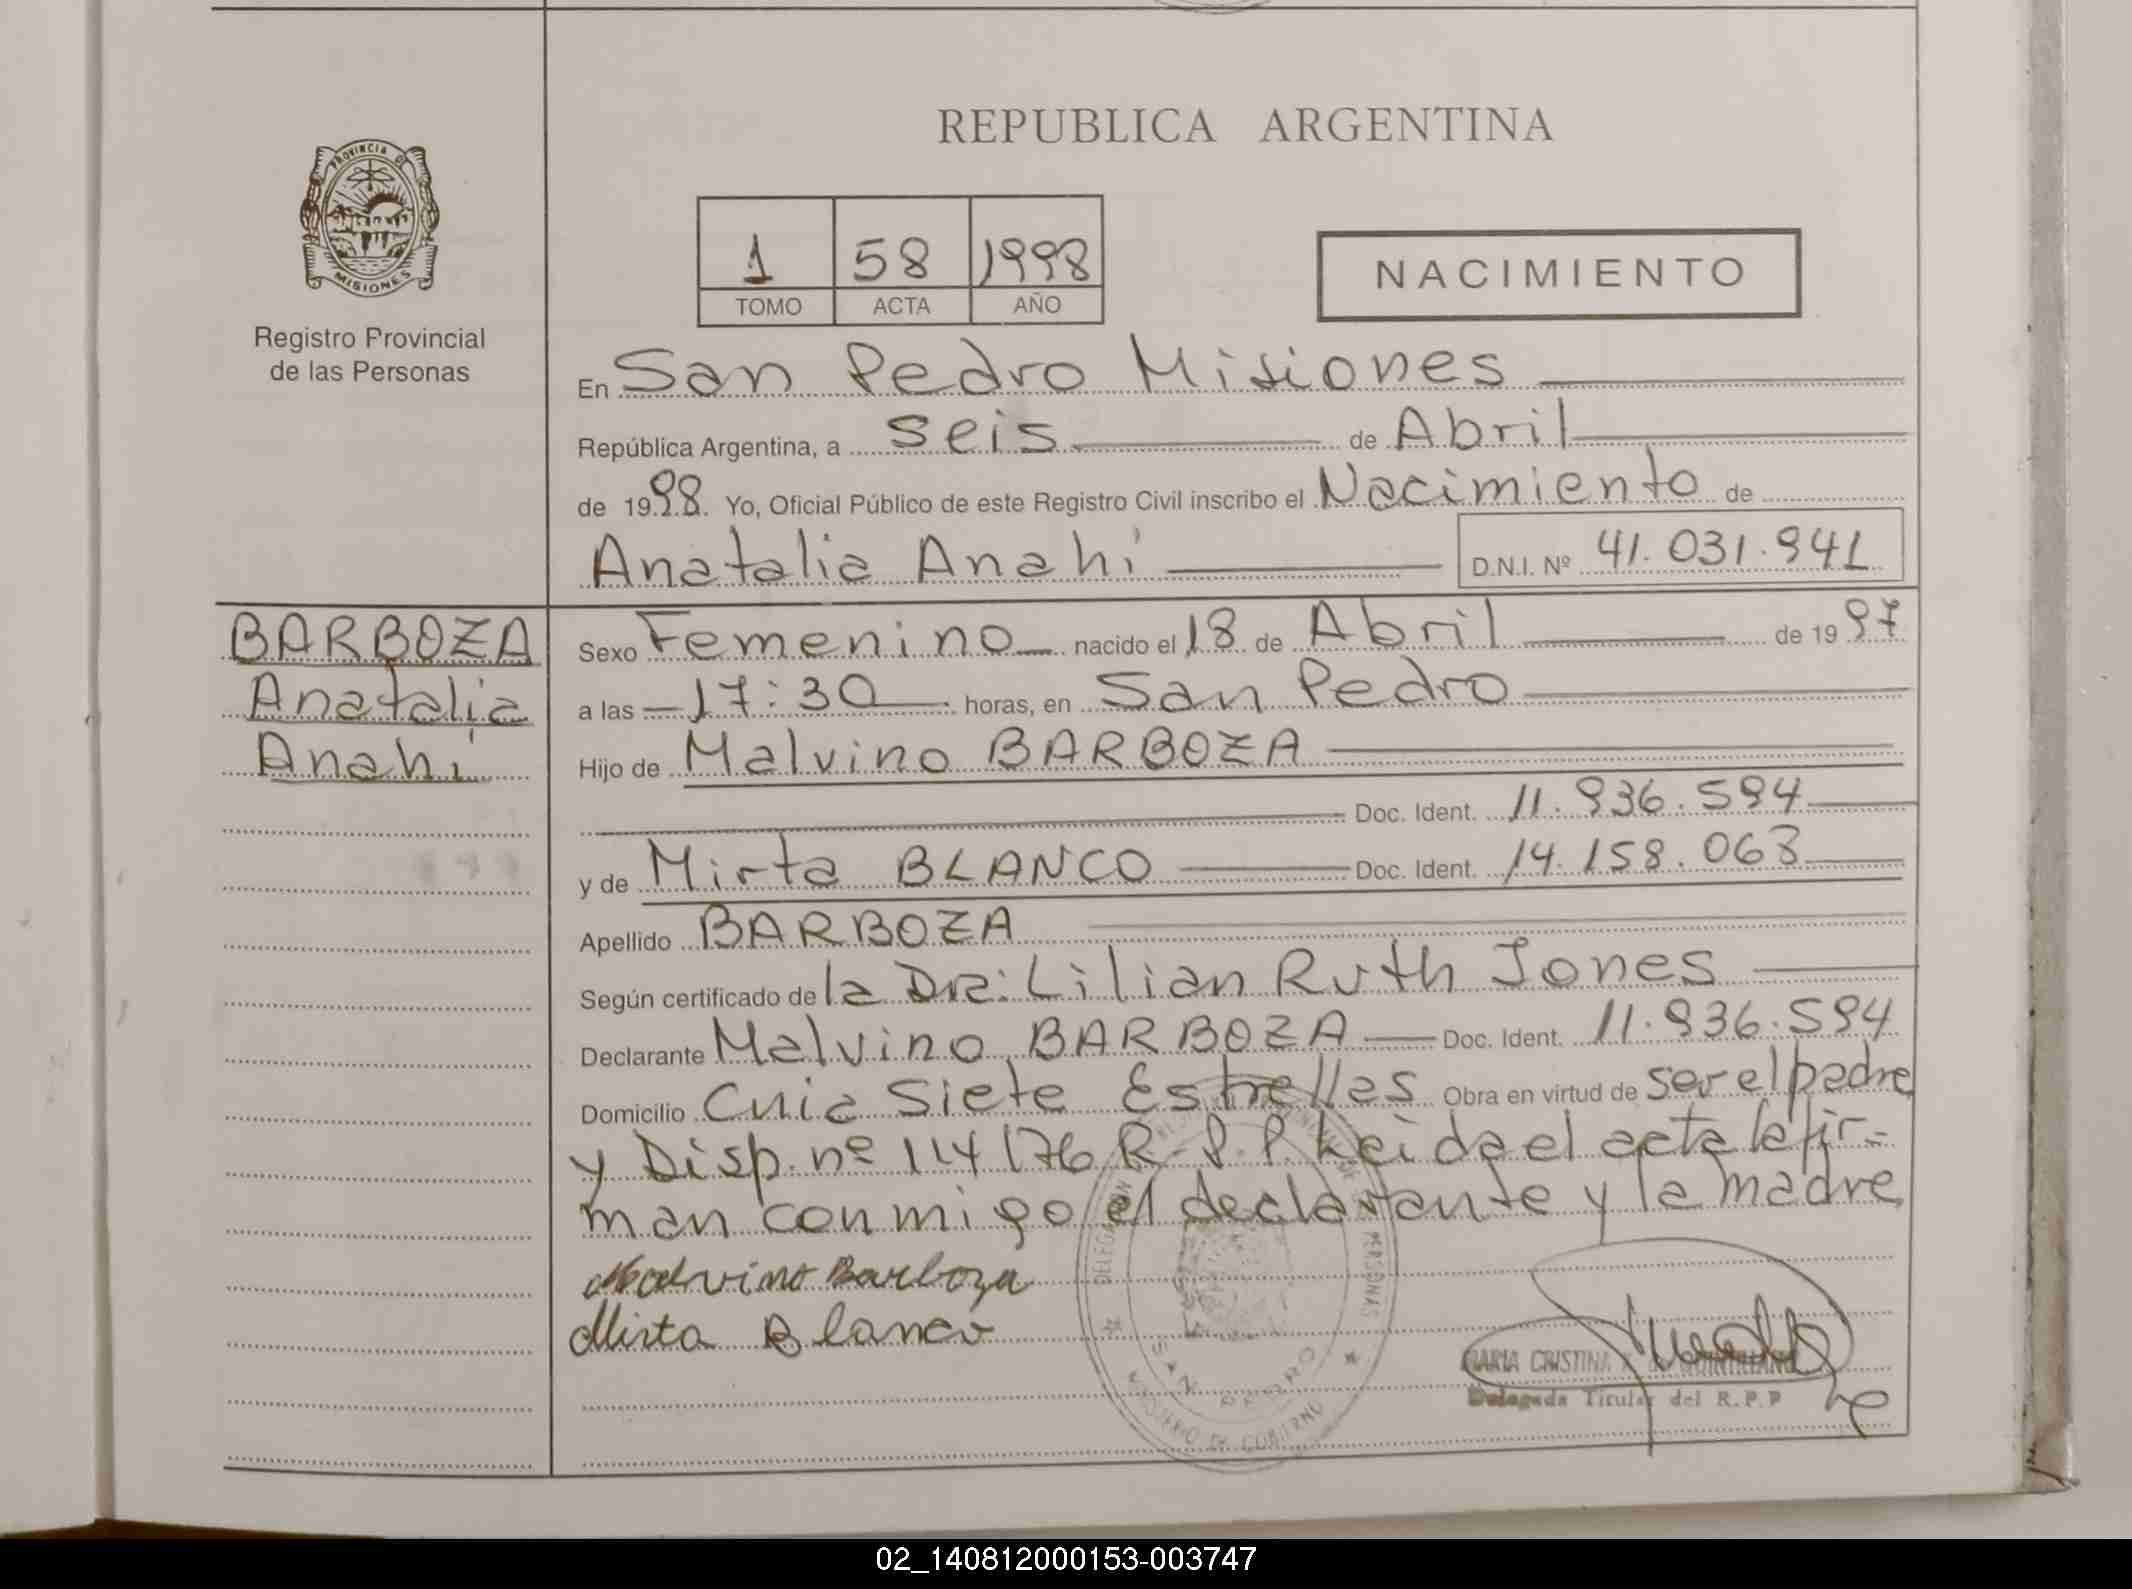 REPUBLICA ARGENTINA
PROVINCIA DE
MISIONES
Registro Provincial
de las Personas
1 58 1998
TOMO ACTA AÑO
NACIMIENTO
En San Pedro Misiones
República Argentina, a seis de Abril
de 1998. Yo, Oficial Público de este Registro Civil inscribo el Nacimiento de
Anatalia Anahí
D.N.I. Nº 41.031.941
BARBOZA
Anatalia
Anahí
Sexo Femenino nacido el 18 de Abril de 1997
a las 17:30 horas, en San Pedro
Hijo de Malvino BARBOZA
Doc. Ident. 11.936.594
y de Mirta BLANCO Doc. Ident. 14.158.063
Apellido BARBOZA
Según certificado de la Dra: Lilian Ruth Jones
Declarante Malvino BARBOZA Doc. Ident. 11.936.594
Domicilio Cuia Siete Estrellas Obra en virtud de ser el padre
y Disp. nº 114/76 R.P.P. Leida el acta la fir=
man conmigo el declarante y la madre
Malvino Barboza
Mirta Blanco
SAN PEDRO
MINISTERIO DE GOBIERNO
MARIA CRISTINA
Delegada Titular del R.P.P
02_140812000153-003747